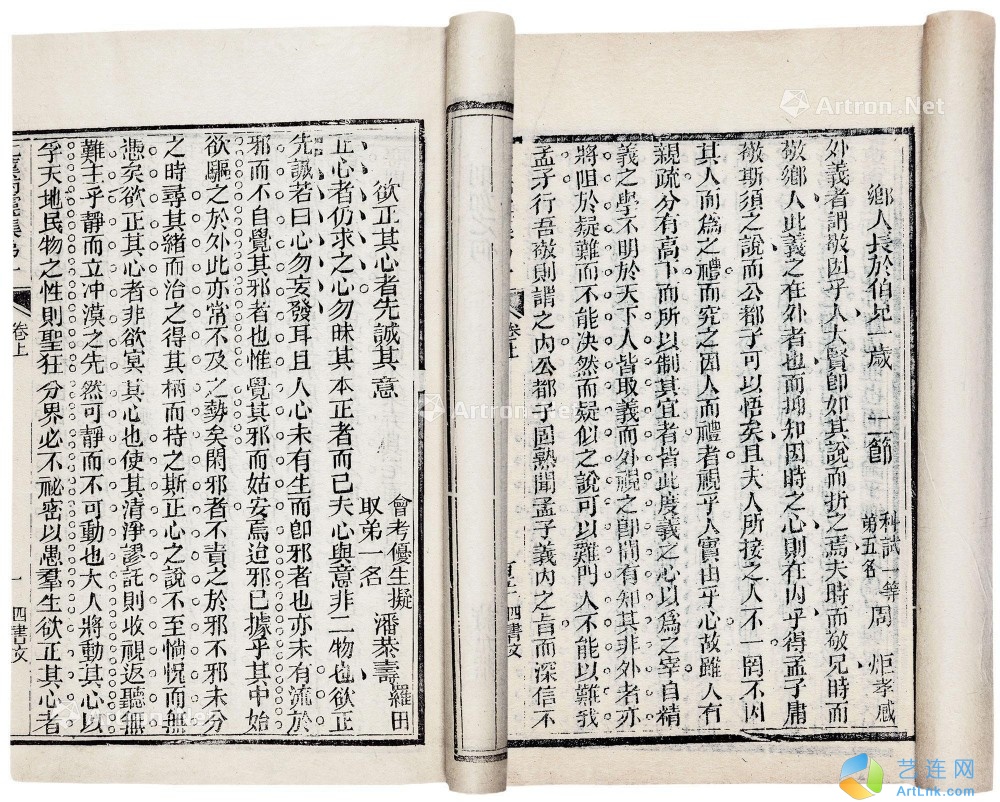 鄉人長於伯兄一歲 二節 科試一等第五名 周 炬 孝感
外義者謂敬因乎人大賢卽如其說而折之焉夫時而敬兄時而
敬鄉人此義之在外者也而抑知因時之心則在內乎得孟子庸
敬斯須之說而公都子可以悟矣且夫人所接之人不一罔不因
其人而爲之禮而究之因人而禮者視乎人實由乎心故雖人有
親疏分有高下而所以制其宜者皆此度義之心以爲之宰自精
義之學不明於天下人皆取義而外視之卽間有知其非外者亦
將阻於疑難而不能決然而疑似之說可以難門人不能以難我
孟子行吾敬則謂之內公都子固熟聞孟子義內之旨而深信不
卷上
四書文
欲正其心者先誠其意 會考優生擬取弟一名 潘恭壽 羅田
正心者仍求之心勿昧其本正者而已夫心與意非二物也欲正
先誠若曰心勿妄發耳且人心未有生而卽邪者也亦未有流於
邪而不自覺其邪者也惟覺其邪而姑安焉迨邪已據乎其中始
欲驅之於外此亦常不及之勢矣閑邪者不責之於邪不邪未分
之時尋其緒而治之得其柄而持之斯正心之說不至惝怳而無
憑矣欲正其心者非欲冥其心也使其清淨謬託則收視返聽無
難主乎靜而立冲漠之先然可靜而不可動也大人將動其心以
孚天地民物之性則聖狂分界必不祕密以愚羣生欲正其心者
卷上
一
四書文
Artron.Net
艺连网
ArtLnk.com